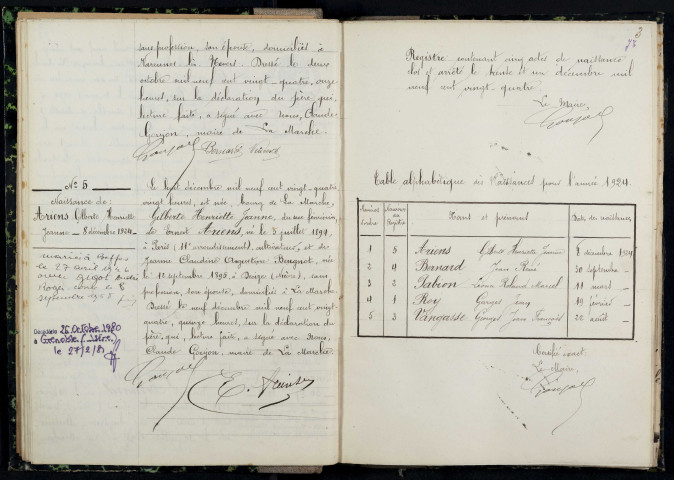 sans profession, son épouse, domiciliés à
Dressé le deux
octobre mil neuf cent vingt-quatre, onze
heures, sur la déclaration du père, qui,
lecture faite, a signé avec Nous, Claude
maire de La Marche.
Nº 5
Naissance de:
Ariens Gilberte Henriette
Jeanne — 8 décembre 1924
marié à
le 27 avril
avec
Roger
septembre
Décédée 25 Octobre 1980
à Grenoble (Isère)
le 27/2/81
Le huit décembre mil neuf cent vingt-quatre
vingt heures, est née, bourg de La Marche,
Gilberte Henriette Jeanne, du sexe féminin,
de Ernest Ariens, né le 3 juillet 1894
à Paris (11e arrondissement), cultivateur, et de
Jeanne Claudine Augustine Bugnot, née
le 11 septembre 1895 à Donzy (Nièvre), sans
profession, son épouse, domiciliés à La Marche.
Dressé le neuf décembre mil neuf cent vingt-
quatre, quinze heures, sur la déclaration du
père, qui, lecture faite, a signé avec Nous,
Claude maire de La Marche
E. Ariens
Registre contenant cinq actes de naissance
clos et arrêté le trente et un décembre mil
neuf cent vingt quatre.
Le Maire,
Table alphabétique des Naissances pour l'année 1924.
Numéros d'ordre Numéros du Registre Noms et prénoms Date des naissances
1 5 Ariens Gilberte Henriette Jeanne 8 décembre 1924
2 4 Bernard Jean 30 septembre —
3 2 Roland Marcel 11 mars —
4 1 Roy Georges Jean 19 février —
5 3 Georges Jean François 22 août —
Certifié exact:
Le Maire,